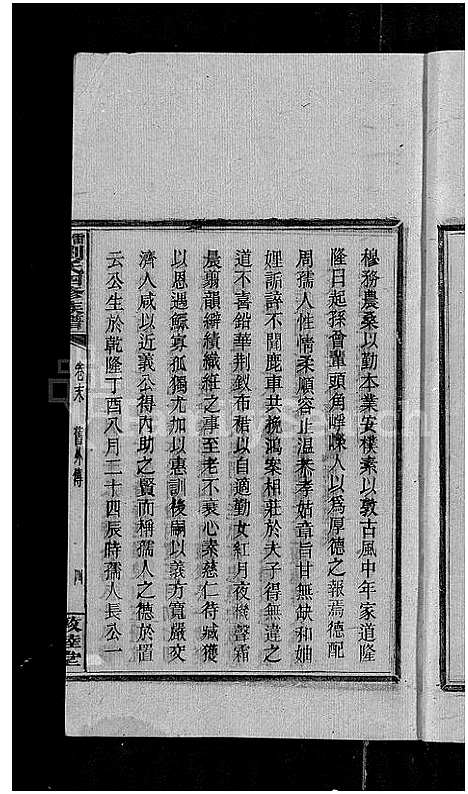 穆務農桑以勤本業安樸素以敦古風中年家道隆
隆日起孫曾輩頭角崢嶸人以爲厚德之報焉德配
周孺人性情柔順容止溫恭孝姑章旨甘無缺和妯
娌詬誶不聞鹿車共挽鴻案相莊於夫子得無違之
道不喜鉛華荆釵布裙以自適勤女紅月夜機聲霜
晨剪韻辮績織絍之事至老不衰心素慈仁待臧獲
以恩遇鰥寡孤獨尤加以惠訓後嗣以義方寬嚴交
濟人咸以近義公得內助之賢而稱孺人之德於置
云公生於乾隆丁酉八月二十四辰時孺人長公一
劉氏四修族譜
卷末
舊小傳
四
敦睦堂